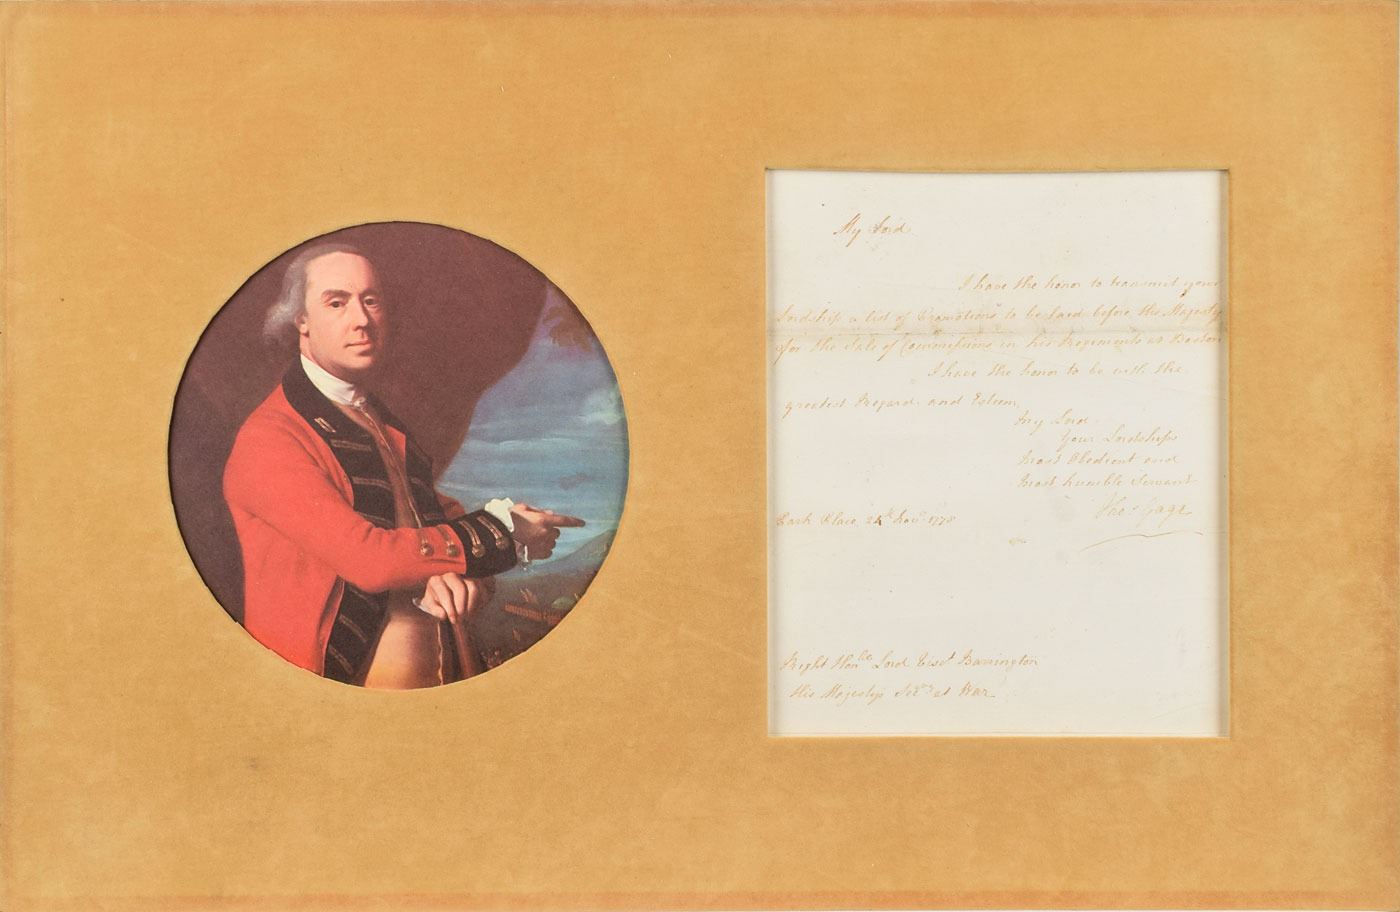 My Lord
I have the honor to transmit your
Lordship a list of Promotions to be laid before His Majesty
for the Sale of Commissions in his Regiments at Boston
I have the honor to be with the
greatest Regard and Esteem,
My Lord
Your Lordships
most Obedient and
most humble Servant
Tho.s Gage
Park Place, 24th Nov.r 1778
Right Hon.ble Lord Visc.t Barrington
His Majestys Sec.ry at War